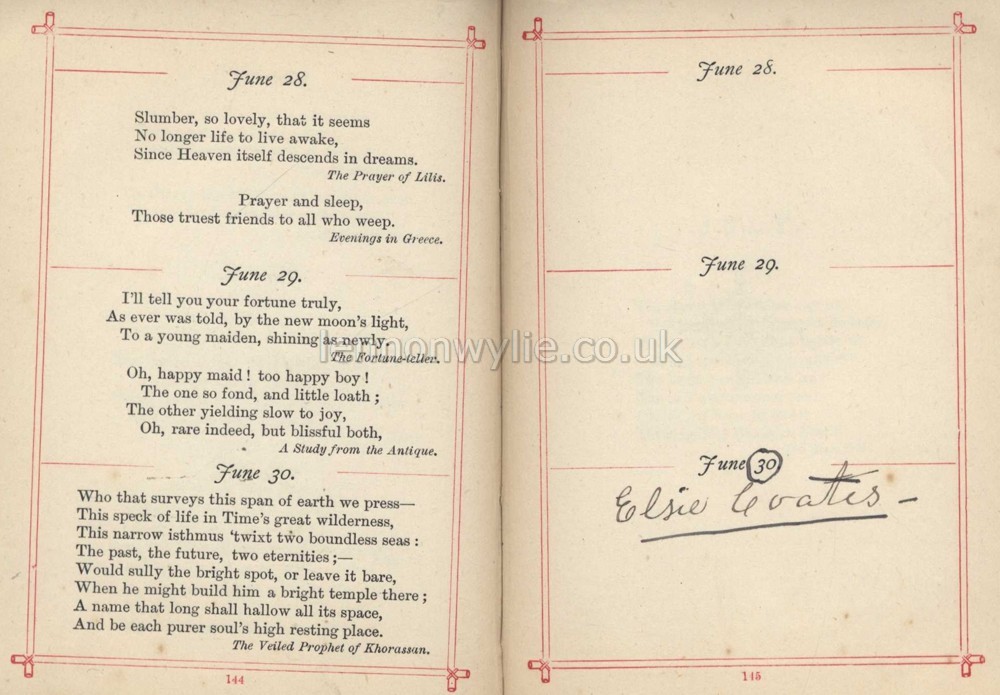 June 28.
Slumber, so lovely, that it seems
No longer life to live awake,
Since Heaven itself descends in dreams.
The Prayer of Lilis.
Prayer and sleep,
Those truest friends to all who weep.
Evenings in Greece.
June 29.
I'll tell you your fortune truly,
As ever was told, by the new moon's light,
To a young maiden, shining as newly.
The Fortune-teller.
Oh, happy maid! too happy boy!
The one so fond, and little loath;
The other yielding slow to joy,
Oh, rare indeed, but blissful both,
A Study from the Antique.
June 30.
Who that surveys this span of earth we press—
This speck of life in Time's great wilderness,
This narrow isthmus 'twixt two boundless seas:
The past, the future, two eternities;—
Would sully the bright spot, or leave it bare,
When he might build him a bright temple there;
A name that long shall hallow all its space,
And be each purer soul's high resting place.
The Veiled Prophet of Khorassan.
144
June 28.
June 29.
June 30.
Elsie Coates –
145
lemonwylie.co.uk